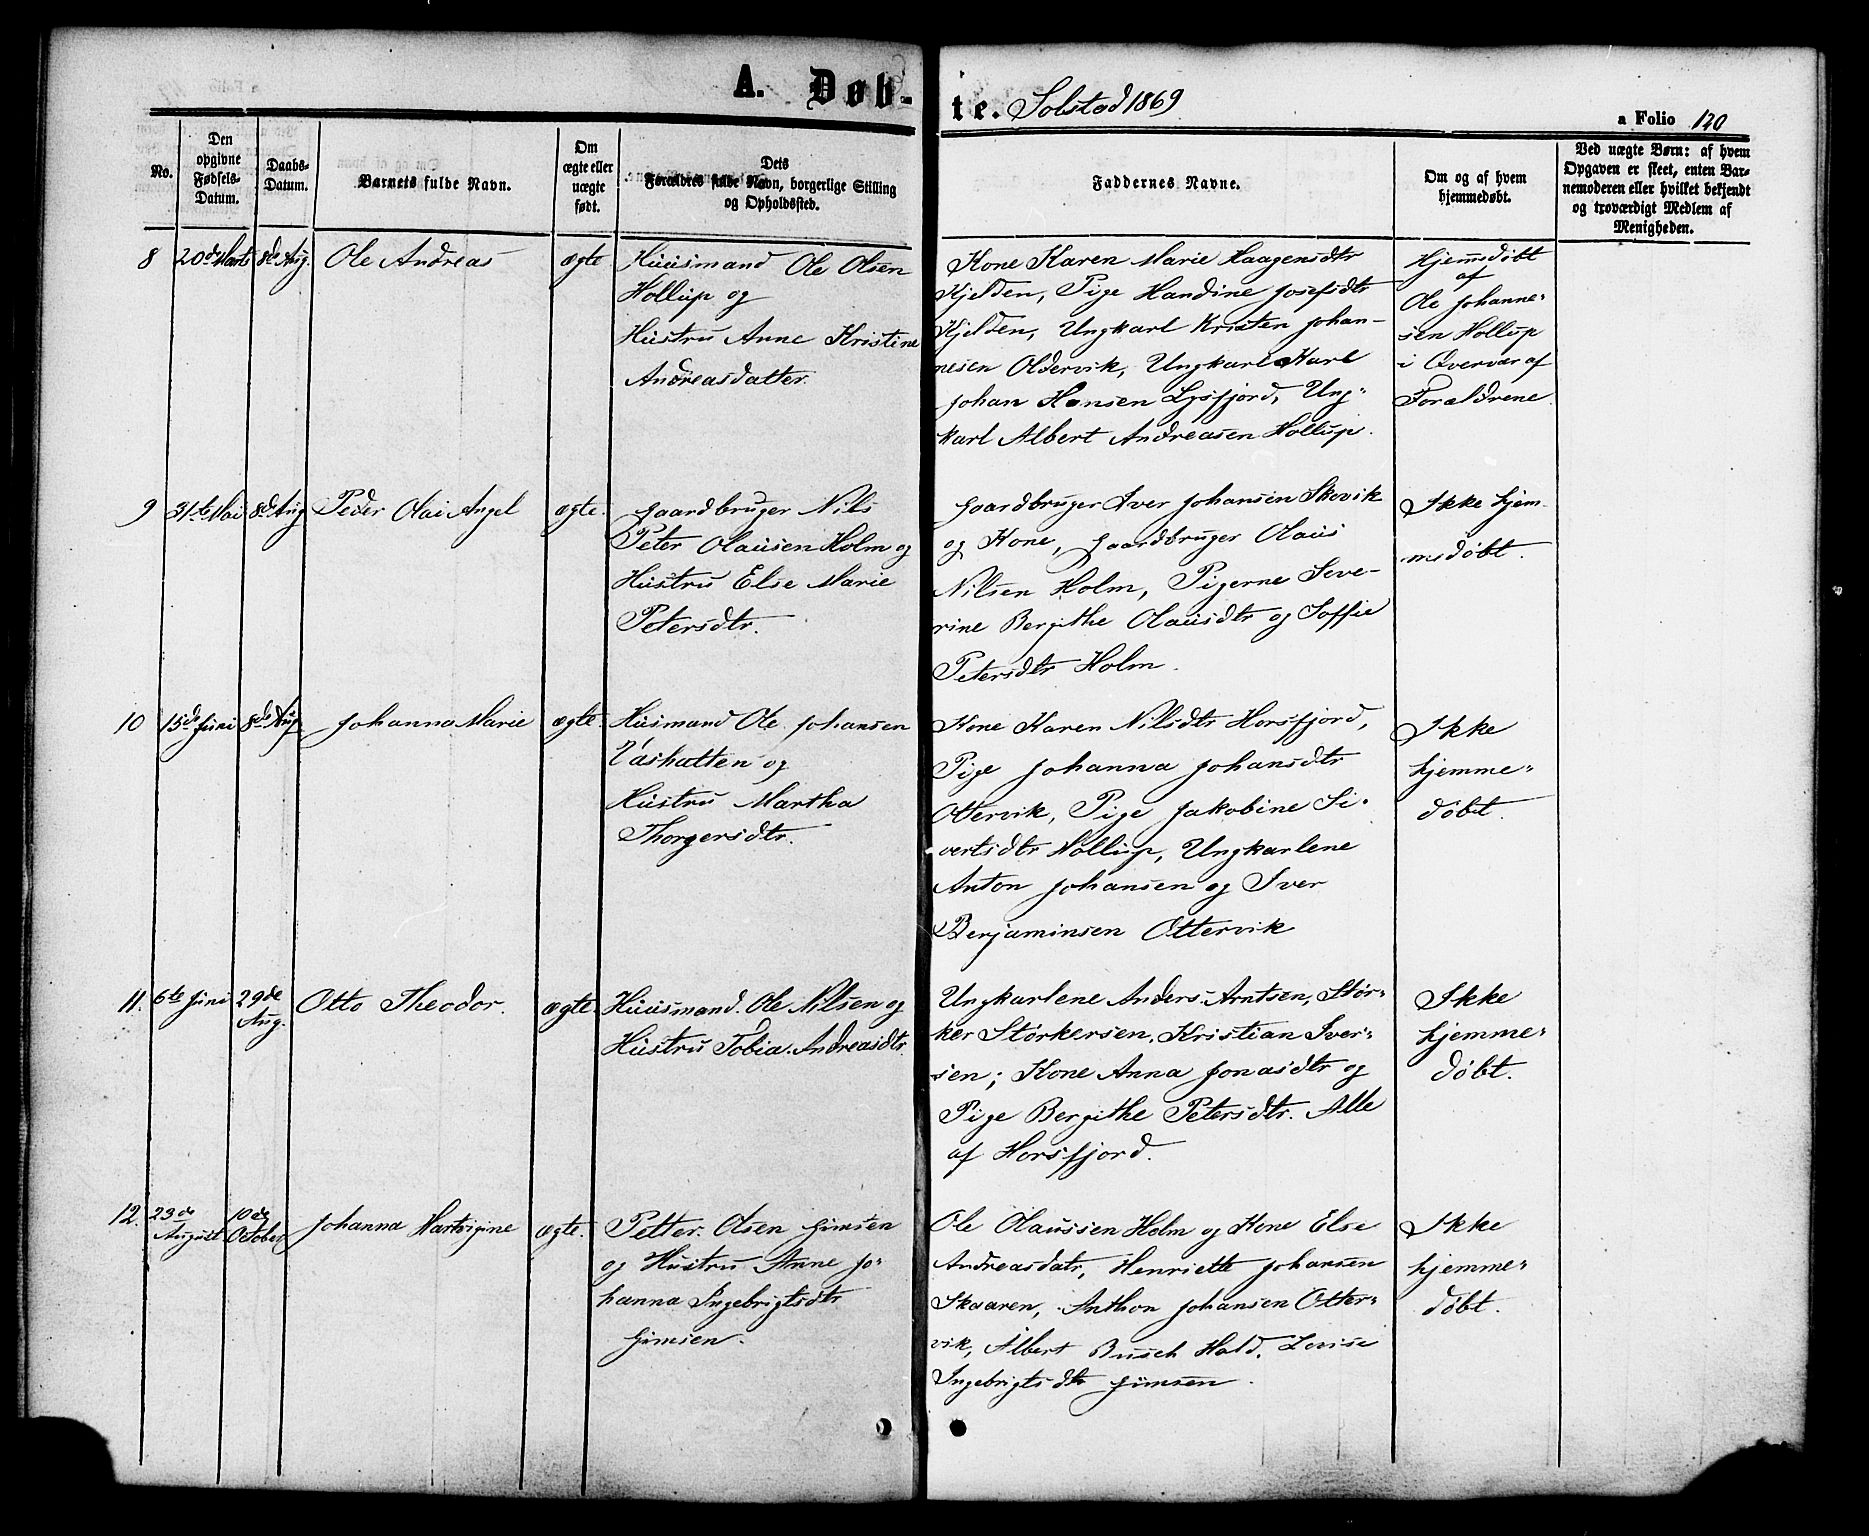 A. Døb-
te. Solstad 1869
a Folio 120
No.
Den
opgivne
Fødsels-
Datum.
Daabs-
Datum.
Barnets fulde Navn.
Om
ægte eller
uægte
født.
Dets
Forældres fulde Navn, borgerlige Stilling
og Opholdssted.
Faddernes Navne.
Om og af hvem
hjemmedøbt.
Ved uægte Børn: af hvem
Opgaven er skeet, enten Bar-
nemoderen eller hvilket bekjendt
og troværdigt Medlem af
Menigheden.
8 20de Marts 8de Aug. Ole Andreas ægte
Huusmand Ole Olsen
Hollup og
Hustru Anne Kristine
Andreasdatter.
Kone Karen Marie Haagensdtr
Kjelden, Pige Handine Josefsdtr
Kjelden, Ungkarl Kristen Johan-
nesen Oldervik, Ungkarl Karl
Johan Hansen Lysfjord, Ung-
karl Albert Andreasen Hollup.
Hjemsdøbt
af
Ole Johanne-
sen Hollup
i Overvær af
Forældrene
9 31te Mai 8de Aug Peder Olai Angel ægte.
Gaardbruger Nils
Peter Olausen Holm og
Hustru Else Marie
Petersdtr.
Gaardbruger Iver Johansen Skovik
og Kone, Gaardbruger Olaus
Nilsen Holm, Pigerne Seve-
rine Bergithe Olausdtr og Soffie
Petersdtr Holm.
Ikke hjem-
msdøbt.
10 15de Juni 8de Aug Johanna Marie ægte.
Husmand Ole Johansen
Vashatten og
Hustru Martha
Thorgersdtr.
Kone Karen Nilsdtr Horsfjord,
Pige Johanna Johansdtr
Ottervik, Pige Jakobine Si-
vertsdtr Hollup, Ungkarlene
Anton Johansen og Iver
Benjaminsen Ottervik
Ikke
hjemme-
døbt.
11. 6te Juni 29de
Aug.
Otto Theodor. ægte.
Huusmand. Ole Nilsen og
Hustru Tobia. Andreasdtr.
Ungkarlene Anders Arntsen, Stør-
ker Størkersen, Kristian Iver-
sen; Kone Anna Jonasdtr og
Pige Bergithe Petersdtr. Alle
af Horsfjord.
Ikke
hjemme-
døbt.
12. 23de
August
10de
October
Johanna Hartvigine ægte.
Petter. Olsen Gimsen
og Hustru Anne Jo-
hanna Ingebrigtsdtr
Gimsen.
Ole Olaussen Holm og Kone Else
Andreasdatr, Henriette Johansen
Skaaren, Anthon Johansen Otter-
vik, Albert Busch Hald. Lovise
Ingebrigtsdtr Gimsen.
Ikke
hjemme-
døbt.